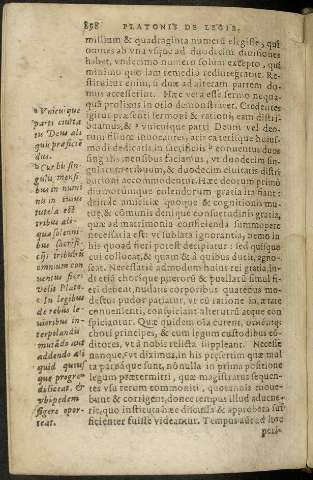 898 PLATONIS DE LEGIB.
missum & quadraginta numerū elegisse, qui
omnes ab vna vsque ad duodecim diuisiones
habet, vndecimo numero solum excepto, qui
minimo quo iam remedio redintegratur. Re-
stituitur enim, si duæ ad alteram partem do-
mus accesserint. Hæc vera esse sermo nequa-
quā prolixus in otio demonstrauerit. Credentes
igitur præsenti sermoni & rationi, eam distri-
buamus, & vnicuique parti Deum vel deo-
rum filium
modi dedicatis, in sacrificiis conuentus duos
singulis mensibus faciamus, vt duodecim sin-
gularum tribuum, & duodecim ciuitatis distri-
butioni accommodentur. Hæc deorum primò
diuinorumque colendorum gratia ita fiant:
deinde amicitiæ quoque & cognitionis mu-
tuæ, & cōmunis denique consuetudinis gratia,
quæ ad matrimonio conficienda summopere
necessaria est: vt sublata ignorantia, nemo in
his quoad fieri potest decipiatur: sed quisque
cui collocat, & quam & à quibus ducit, agno-
scat. Necessariæ admodum huius rei gratia, lu-
di etiā choríque puerorū & puellarū simul fie-
ri debent, nudatis corporibus quatenus mo-
destus pudor patiatur, vt cū ratione in ætate
conuenienti, conspiciant alterutri atque con-
spiciantur. Quæ quidem oīa curent, ordinent-
que ij principes, & cum legum custodibus cō-
ditores, vt à nobis relicta suppleant. Necesse
nanque, vt diximus, in his præsertim quæ mul-
ta paruáque sunt, nōnulla in prima positione
legum prætermitti, quæ magistratus sequen-
tes vsu rerum commoniti, quotannis moue-
bunt & corrigent, donec tempus illud aduene-
rit, quo instituta hæc & approbata suf-
ficienter fuisse videantur. Tempus autē ad hoc
peri-
Vnicuique
parti ciuita
tis Deus ali
quis præficiē
dus.
Cur bis sin-
gulis mensi-
bus in numi
nis in cuius
tutela est
tribus ali-
qua solenni-
bus sacrifi-
cijs tribulis
omnium con
uentus fieri
velit Plato.
In legibus
de rebus le-
uioribus in-
terpolandis
mutādo aut
addendo ali
quid quous-
que progre-
diliceat, &
vbi pedem
figere opor-
teat.